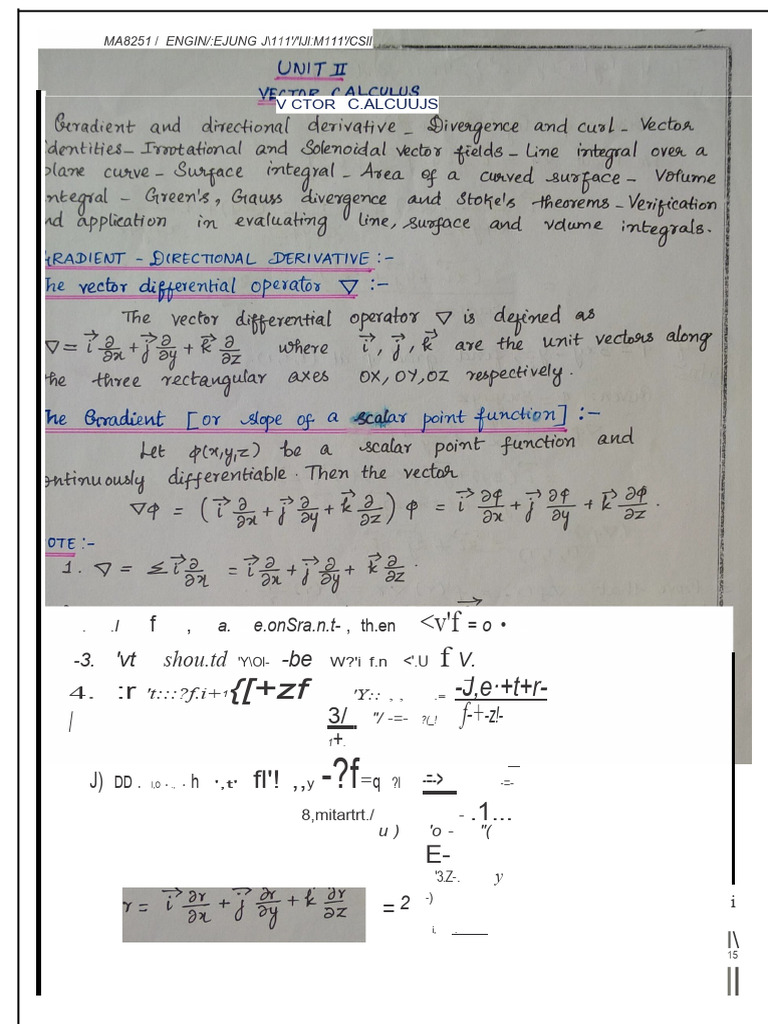 MA8251 / ENGIN/:EJUNG J\111'/'IJI:M111'/CSII
UNIT II
VECTOR CALCULUS
V CTOR C.ALCUUJS
Gradient and directional derivative - Divergence and curl - Vector
identities - Irrotational and Solenoidal vector fields - Line integral over a
plane curve - Surface integral - Area of a curved surface - Volume
integral - Green's, Gauss divergence and Stoke's theorems - Verification
nd application in evaluating line, surface and volume integrals.
GRADIENT - DIRECTIONAL DERIVATIVE :-
The vector differential operator ∇ :-
The vector differential operator ∇ is defined as
∇ = i⃗ ∂/∂x + j⃗ ∂/∂y + k⃗ ∂/∂z where i⃗, j⃗, k⃗ are the unit vectors along
the three rectangular axes OX, OY, OZ respectively.
The Gradient [or slope of a scalar point function] :-
Let φ(x,y,z) be a scalar point function and
ontinuously differentiable. Then the vector
∇φ = (i⃗ ∂/∂x + j⃗ ∂/∂y + k⃗ ∂/∂z) φ = i⃗ ∂φ/∂x + j⃗ ∂φ/∂y + k⃗ ∂φ/∂z .
OTE :-
1. ∇ = Σ i⃗ ∂/∂x = i⃗ ∂/∂x + j⃗ ∂/∂y + k⃗ ∂/∂z .
. ./ f , a. e.onSra.n.t- , th.en <v'f = o •
-3. 'vt shou.td 'Y\OI- -be W?'i f.n <'.U f V.
4. :r 't:::?f.i+1{[+zf 'Y:: , , .= -J,e·+t+r-
3/ "/ -=- ?(_! f-+-z!-
J) DD . h fl'! ,,y -?f=q ?I -=-> -=-
8,mitartrt./ - .1...
u ) 'o - "(
E-
'3.Z-. y
r = i⃗ ∂r/∂x + j⃗ ∂r/∂y + k ∂r/∂z = 2 -)
i
15